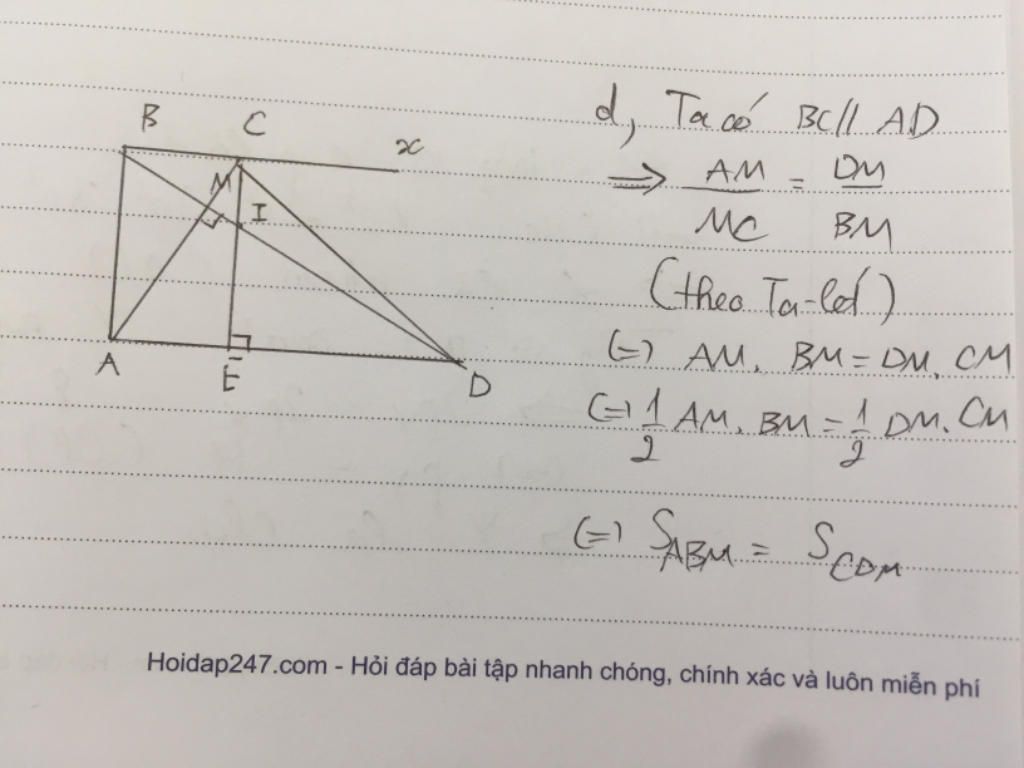 B C x
M
I
A E D
d, Ta có BC // AD
=> AM/MC = DM/BM
(theo Ta-let)
(=) AM. BM = DM. CM
(=) 1/2 AM. BM = 1/2 DM. CM
(=) S_ABM = S_CDM
Hoidap247.com - Hỏi đáp bài tập nhanh chóng, chính xác và luôn miễn phí